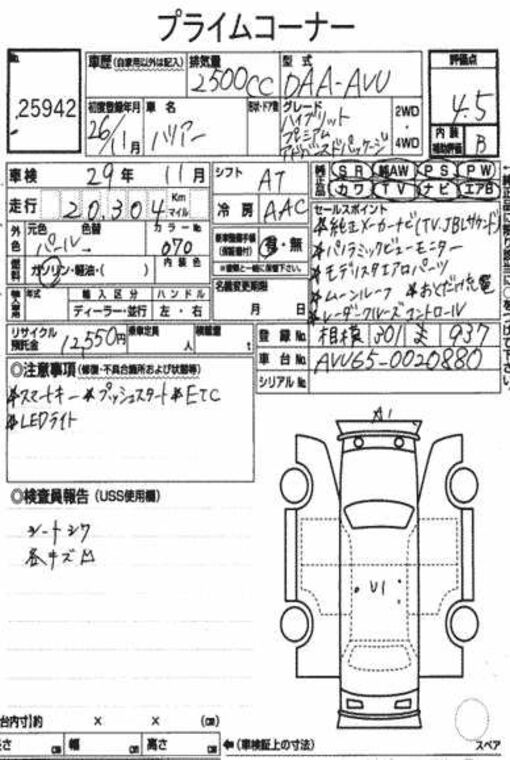 プライムコーナー
No. 25942
車歴 (自家用以外は記入)
排気量 2500cc
型式 DAA-AVU
評価点 4.5
初度登録年月 26/11月
車名 ハリアー
形状・ドア数
グレード
ハイブリット
プレミアム
アドバンスドパッケージ
2WD
・
4WD
内装補助評価 B
車検 29年 11月
シフト AT
純正品 SR 純AW PS PW
カワ TV ナビ エアB
走行 20,304 Km マイル
冷房 AAC
セールスポイント
*純正メーカーナビ(TV.JBLサウンド)
*パノラミックビューモニター
*モデリスタエアロパーツ
*ムーンルーフ *おくだけ充電
*レーダークルーズコントロール
外色 元色 パール 色替 →
カラーNo 070
新車整備手帳(保証書付) 有・無
※書類と一緒に保管下さい。
燃料 ガソリン・軽油・( )
内装色
名義変更期限 月 日
輸入車用 年式 輸入区分 ハンドル
ディーラー・並行 左・右
リサイクル預託金 12,550円
乗車定員 人
積載量 t
登録No. 相模 301 ま 937
車台No. AVU65-0020880
シリアルNo.
◎注意事項 (修復・不具合箇所および状態等)
*スマートキー *プッシュスタート *ETC
*LEDライト
A1
◎検査員報告 (USS使用欄)
シートシワ
各キズ凹
U1
台内寸)約 × × (㎝)
長さ ㎝ 幅 ㎝ 高さ ㎝ ←(車検証上の寸法)
スペア